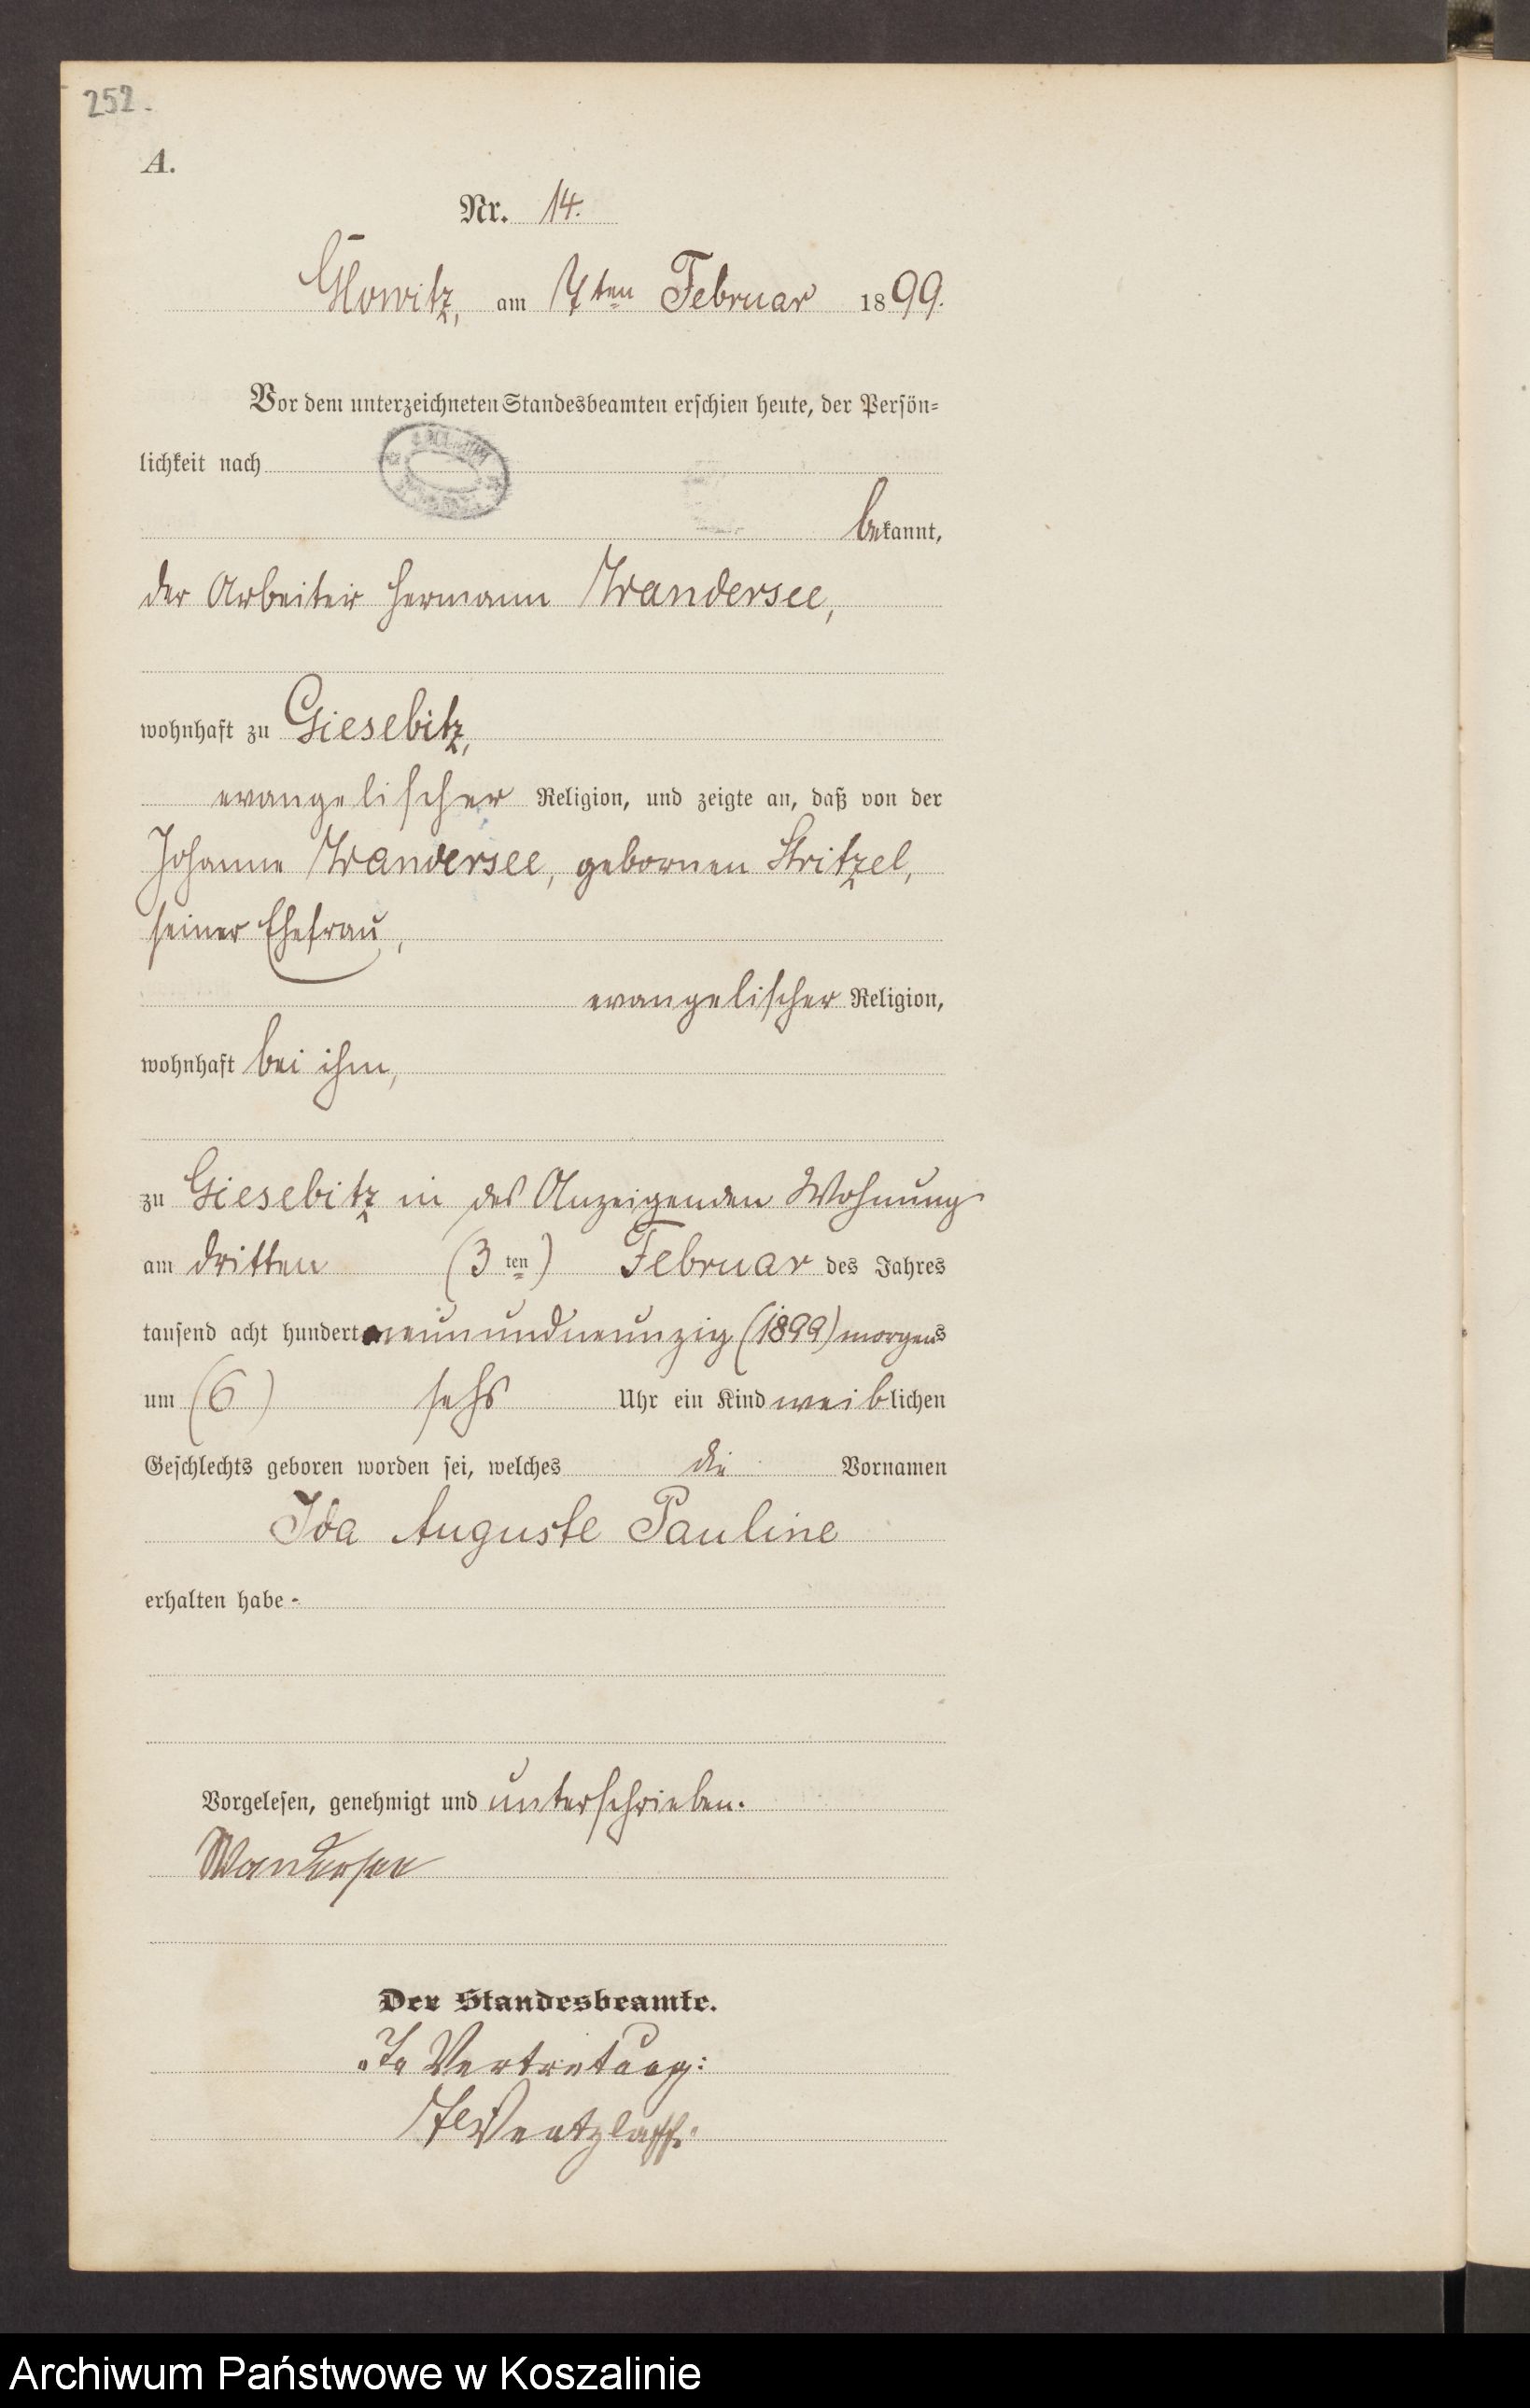 252.
A.
Nr. 14.
Glowitz, am 7ten Februar 1899.
Vor dem unterzeichneten Standesbeamten erschien heute, der Persön-
lichkeit nach
bekannt,
der Arbeiter Hermann Wandersee,
wohnhaft zu Giesebitz,
evangelischer Religion, und zeigte an, daß von der
Johanne Wandersee, gebornen Stritzel,
seiner Ehefrau,
evangelischer Religion,
wohnhaft bei ihm,
zu Giesebitz in des Anzeigenden Wohnung
am dritten (3ten) Februar des Jahres
tausend acht hundert neunundneunzig (1899) morgens
um (6) sechs Uhr ein Kind weiblichen
Geschlechts geboren worden sei, welches die Vornamen
Ida Auguste Pauline
erhalten habe -
Vorgelesen, genehmigt und unterschrieben.
Wandersee
Der Standesbeamte.
In Vertretung:
Wentzlaff.
Archiwum Państwowe w Koszalinie